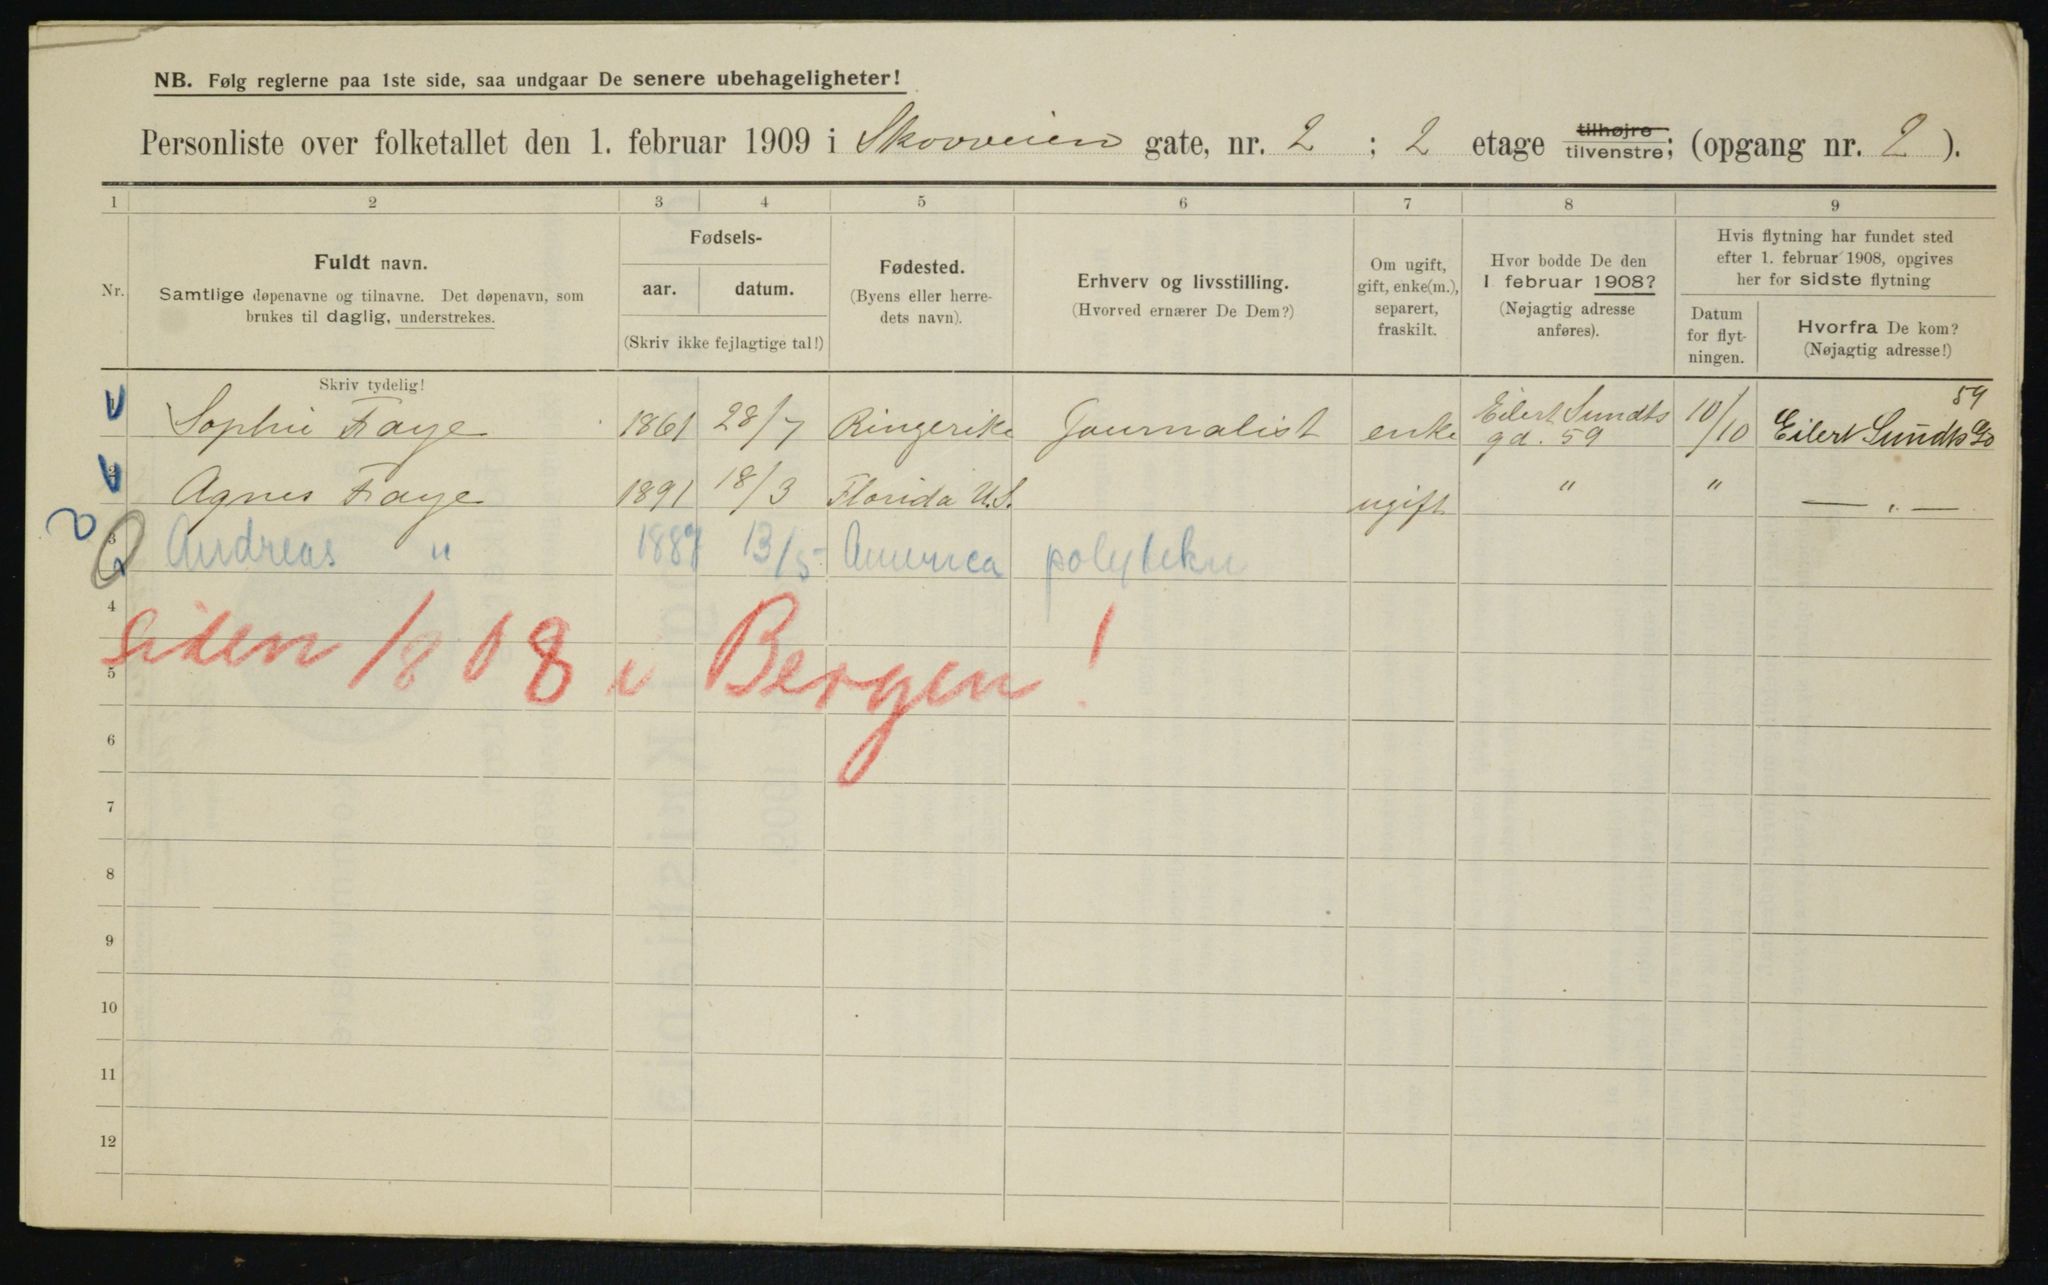 NB. Følg reglerne paa 1ste side, saa undgaar De senere ubehageligheter!
Personliste over folketallet den 1. februar 1909 i Skovveien gate, nr. 2 ; 2 etage tilhøjre tilvenstre; (opgang nr. 2 ).
1 2 3 4 5 6 7 8 9
Nr.
Fuldt navn.
Samtlige døpenavne og tilnavne. Det døpenavn, som
brukes til daglig, understrekes.
Skriv tydelig!
Fødsels-
aar. datum.
(Skriv ikke fejlagtige tal!)
Fødested.
(Byens eller herre-
dets navn).
Erhverv og livsstilling.
(Hvorved ernærer De Dem?)
Om ugift,
gift, enke(m.),
separert,
fraskilt.
Hvor bodde De den
1 februar 1908?
(Nøjagtig adresse
anføres).
Hvis flytning har fundet sted
efter 1. februar 1908, opgives
her for sidste flytning
Datum
for flyt-
ningen.
Hvorfra De kom?
(Nøjagtig adresse!)
1 Sophie Faye 1861 28/7 Ringerike Journalist enke Eilert Sundts gd. 59 10/10 Eilert Sundts Gd 59
2 Agnes Faye 1891 18/3 Florida U.S. ugift " " — " —
3 Andreas " 1887 13/5 America polytekn
4
Siden 1/8 08 i Bergen!
5
6
7
8
9
10
11
12